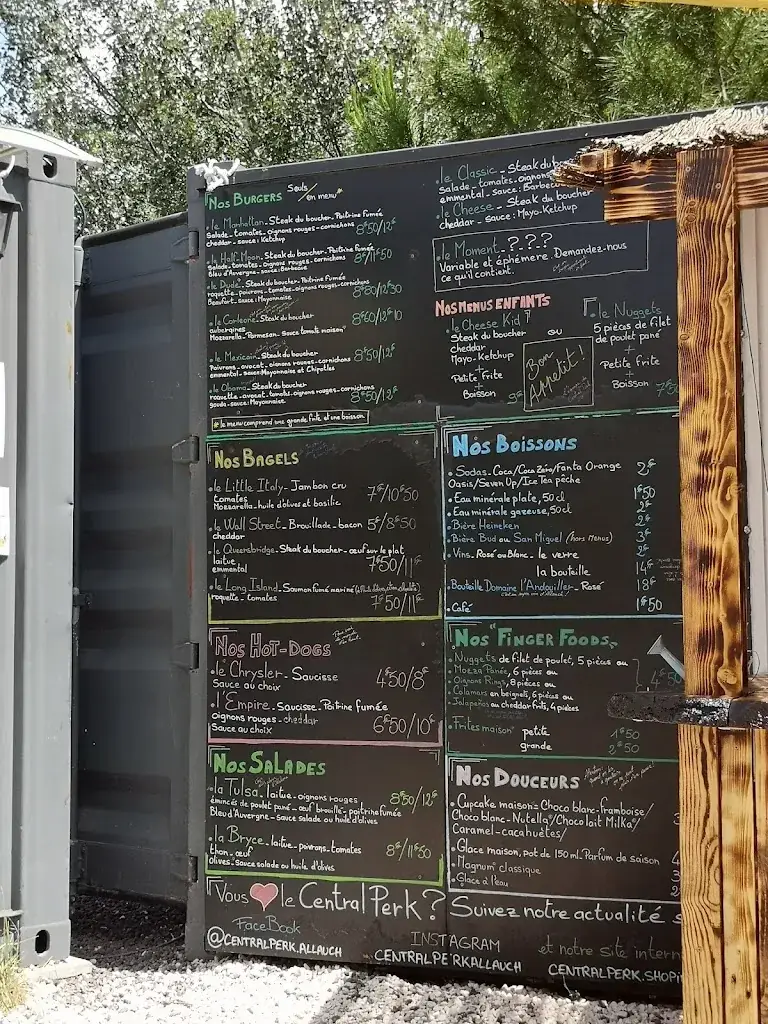 Nos Burgers Seuls / en menu*
• le Manhattan - Steak du boucher - Poitrine fumée
Salade - tomates - oignons rouges - cornichons
cheddar - sauce : Ketchup
8€50/12€
• le Half-Moon - Steak du boucher - Poitrine fumée
salade - tomates - oignons rouges - cornichons
Bleu d'Auvergne - sauce : Barbecue
8€/11€50
• le Dude - Steak du boucher - Poitrine fumée
roquette - poivrons - tomates - oignons rouges - cornichons
Beaufort - sauce : Mayonnaise
8€80/12€30
• le Corleone - Steak du boucher
aubergines
Mozzarella - Parmesan - Sauce tomate maison
8€60/12€10
• le Mexicain - Steak du boucher
Poivrons - avocat - oignons rouges - cornichons
emmental - sauce : Mayonnaise et Chipotles
8€50/12€
• le Obama - Steak du boucher
roquette - avocat - tomates - oignons rouges - cornichons
gouda - sauce : Mayonnaise
8€50/12€
* le menu comprend une grande frite et une boisson
le Classic - Steak du
Salade - tomates - oignons
emmental - sauce : Barbecue
• le Cheese - Steak du boucher
cheddar - sauce : Mayo-Ketchup
• le Moment - ? . ? . ?
Variable et éphémère. Demandez-nous
ce qu'il contient.
Nos Menus Enfants
le Cheese Kid
Steak du boucher
cheddar
Mayo-Ketchup
+
Petite frite
+
Boisson
9€
ou
Bon
Appetit !
le Nuggets
5 pièces de filet
de poulet pané
+
Petite frite
+
Boisson
Nos Bagels
• le Little Italy - Jambon cru
tomates
Mozzarella - huile d'olives et basilic
7€/10€50
• le Wall Street - Brouillade - bacon
cheddar
5€/8€50
• le Queensbridge - Steak du boucher - œuf sur le plat
laitue
emmental
7€50/11€
• le Long Island - Saumon fumé mariné
roquette - tomates
7€50/11€
Nos Boissons
• Sodas - Coca/Coca Zéro/Fanta Orange
Oasis/Seven Up/Ice Tea pêche
2€
• Eau minérale plate, 50 cl
1€50
• Eau minérale gazeuse, 50cl
2€
• Bière Heineken
2€
• Bière Bud ou San Miguel (hors Menus)
3€
• Vins - Rosé ou Blanc - le verre
2€
la bouteille
14€
• Bouteille Domaine l'Andouiller - Rosé
18€
• Café
1€50
Nos Hot-Dogs
• le Chrysler - Saucisse
Sauce au choix
4€50/8€
• l'Empire - Saucisse - Poitrine fumée
oignons rouges - cheddar
Sauce au choix
6€50/10€
Nos "Finger Foods"
• Nuggets de filet de poulet, 5 pièces ou
• Mozza Panée, 6 pièces ou
• Oignons Rings, 8 pièces ou
• Calamars en beignets, 6 pièces ou
• Jalapeños ou cheddar frits, 4 pièces
4€50
• Frites maison
petite 1€50
grande 2€50
Nos Salades
• la Tulsa - laitue - oignons rouges
émincés de poulet pané - œuf brouillé - poitrine fumée
Bleu d'Auvergne - Sauce salade ou huile d'olives
8€50/12€
• la Bryce - laitue - poivrons - tomates
thon - œuf
Olives - Sauce salade ou huile d'olives
8€/11€50
Nos Douceurs
• Cupcake maison : Choco blanc-framboise/
Choco blanc - Nutella/Choco lait Milka/
Caramel - cacahuètes/
• Glace maison, pot de 150 ml. Parfum de saison
• Magnum classique
• Glace à l'eau
Vous ♥ le Central Perk ? Suivez notre actualité s
FaceBook
@centralperk.allauch
Instagram
centralperkallauch
et notre site intern
centralperk.shop